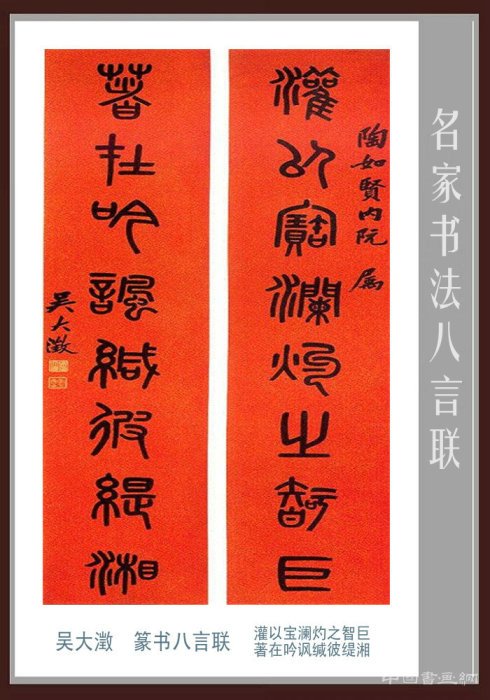 名家书法八言联
灌以寶瀾灼之智巨
陶如賢内阮 屬
著在吟諷緘彼緹湘
吳大澂
吴大澂 篆书八言联
灌以宝澜灼之智巨
著在吟讽缄彼缇湘
中國書畫網